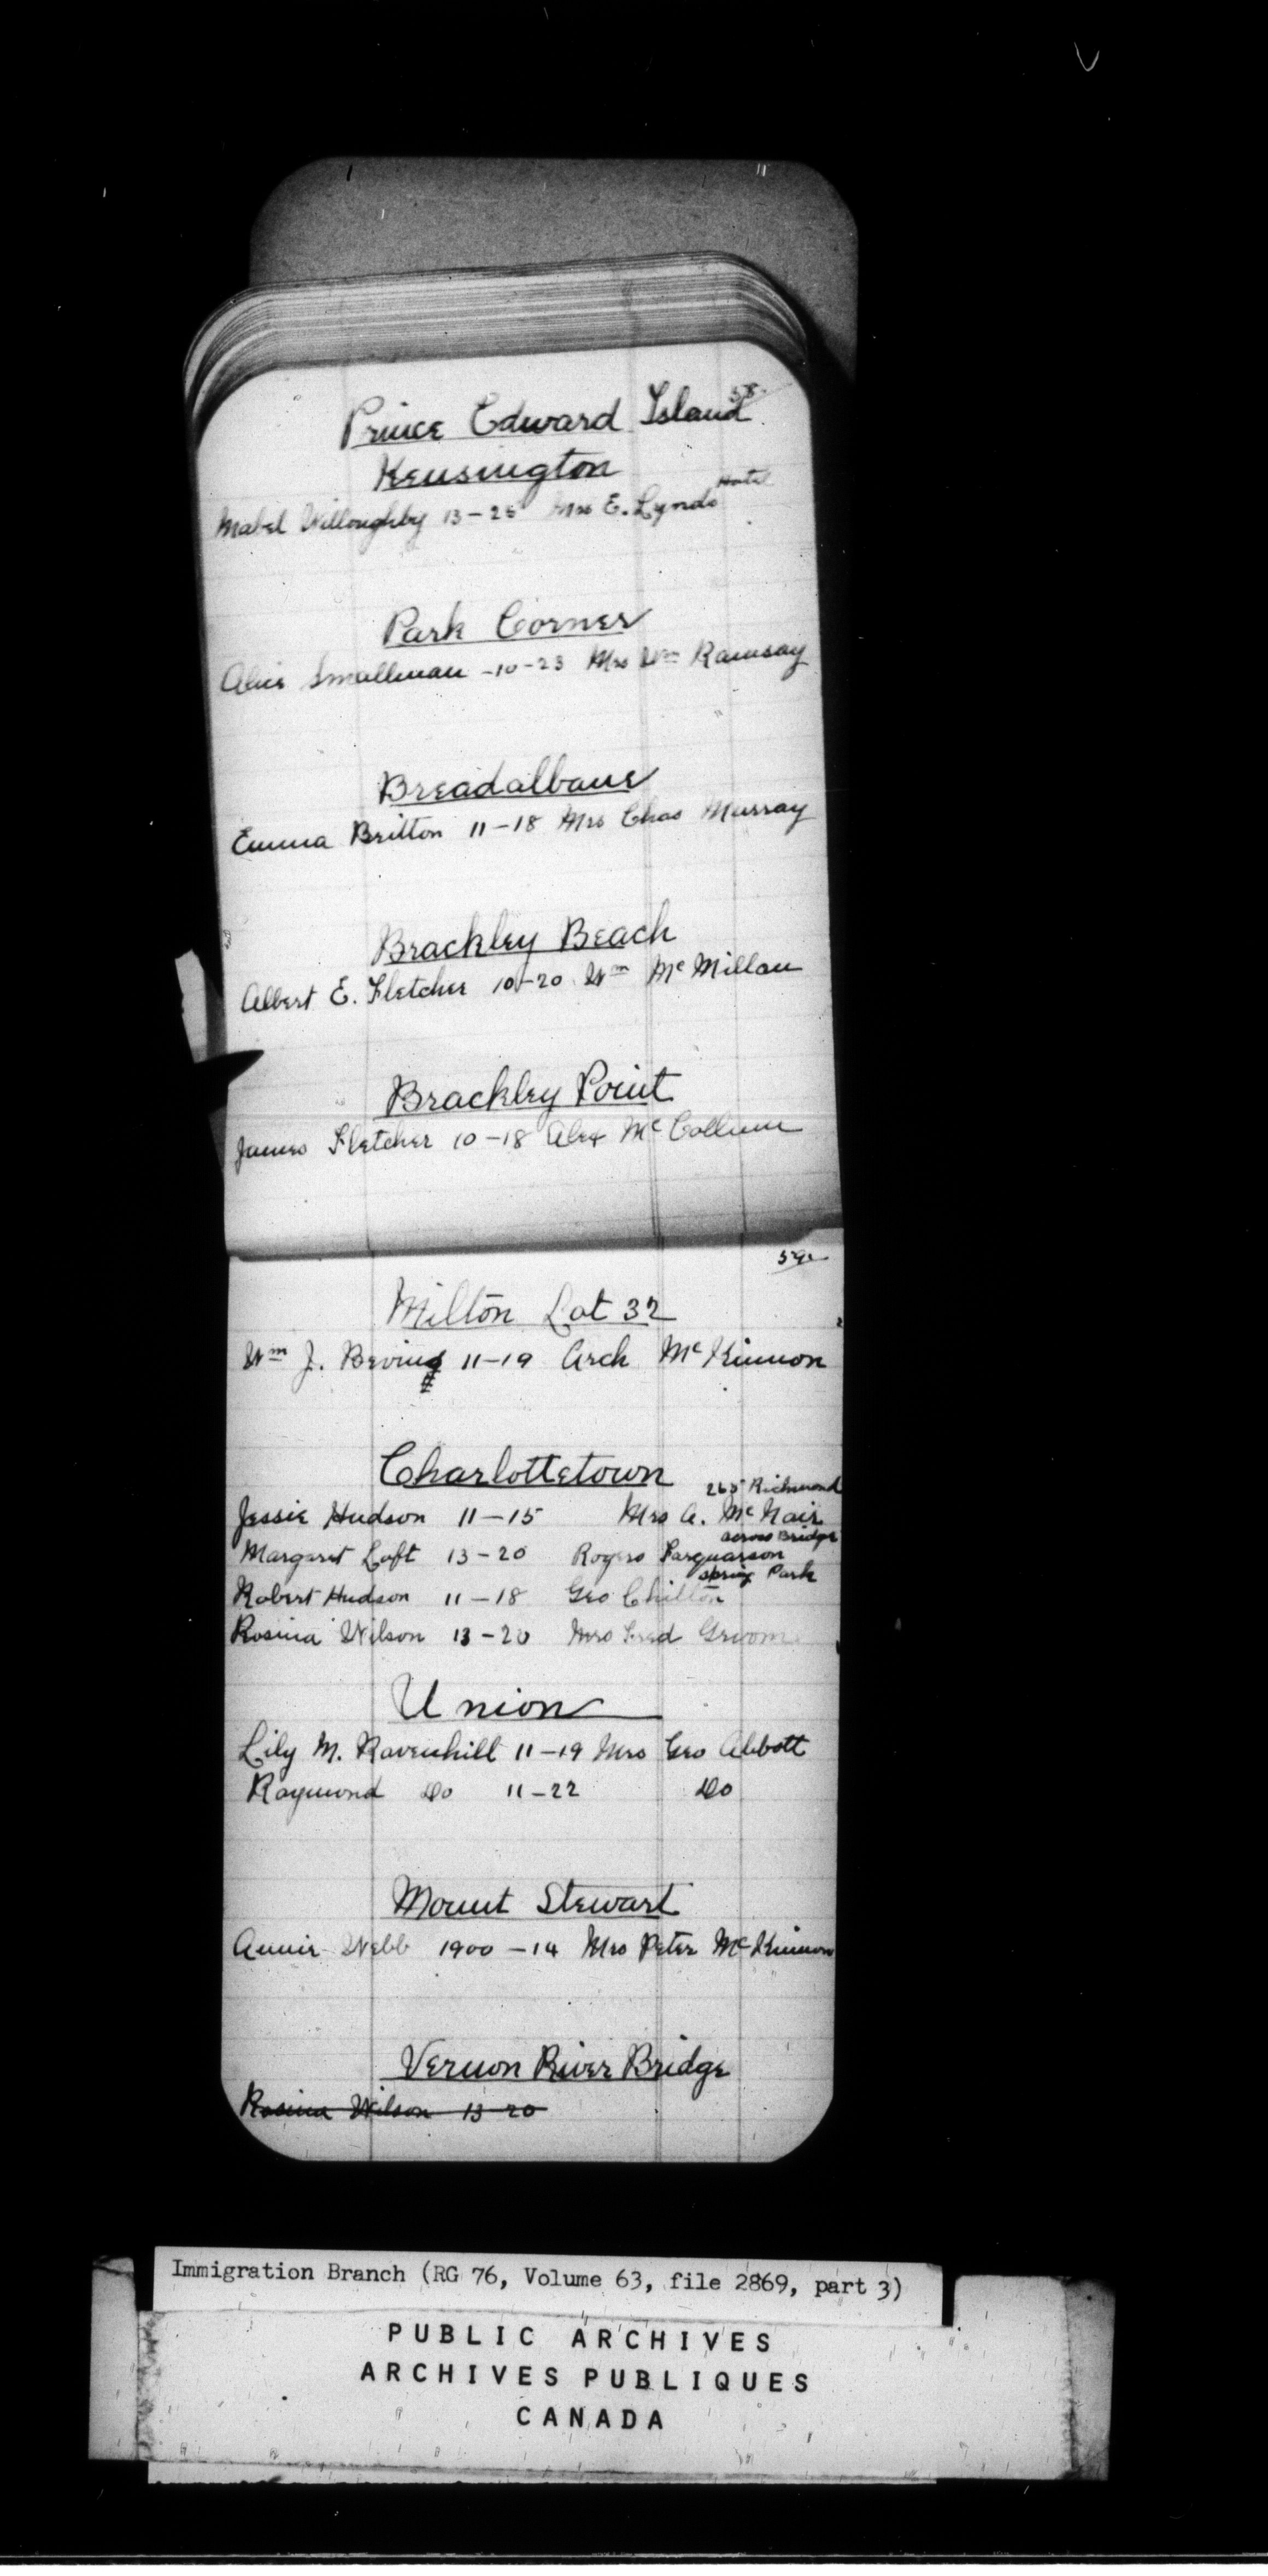 58.
Prince Edward Island
Kensington
Hotel
Mabel Willoughby 13-25 Mrs E. Lynds
Park Corner
Alice Smallman -10-23 Mrs Wm Ramsay
Breadalbane
Emma Britton 11-18 Mrs Chas Murray
Brackley Beach
Albert E. Fletcher 10-20 Wm McMillan
Brackley Point
James Fletcher 10-18 Alex McCallum
59.
Milton Lot 32
Wm J. Beving 11-19 Arch McKinnon
Charlottetown
265 Richmond
Jessie Hudson 11-15 Mrs A. McNair
across Bridge
Margaret Loft 13-20 Rogers Farquarson
Spring Park
Robert Hudson 11-18 Geo Chilton
Rosina Wilson 13-20 Mrs Fred Groom
Union
Lily M. Ravenhill 11-19 Mrs Geo Abbott
Raymond Do 11-22 Do
Mount Stewart
Annie Webb 1900-14 Mrs Peter McKinnon
Vernon River Bridge
Rosina Wilson 13-20
Immigration Branch (RG 76, Volume 63, file 2869, part 3)
PUBLIC ARCHIVES
ARCHIVES PUBLIQUES
CANADA